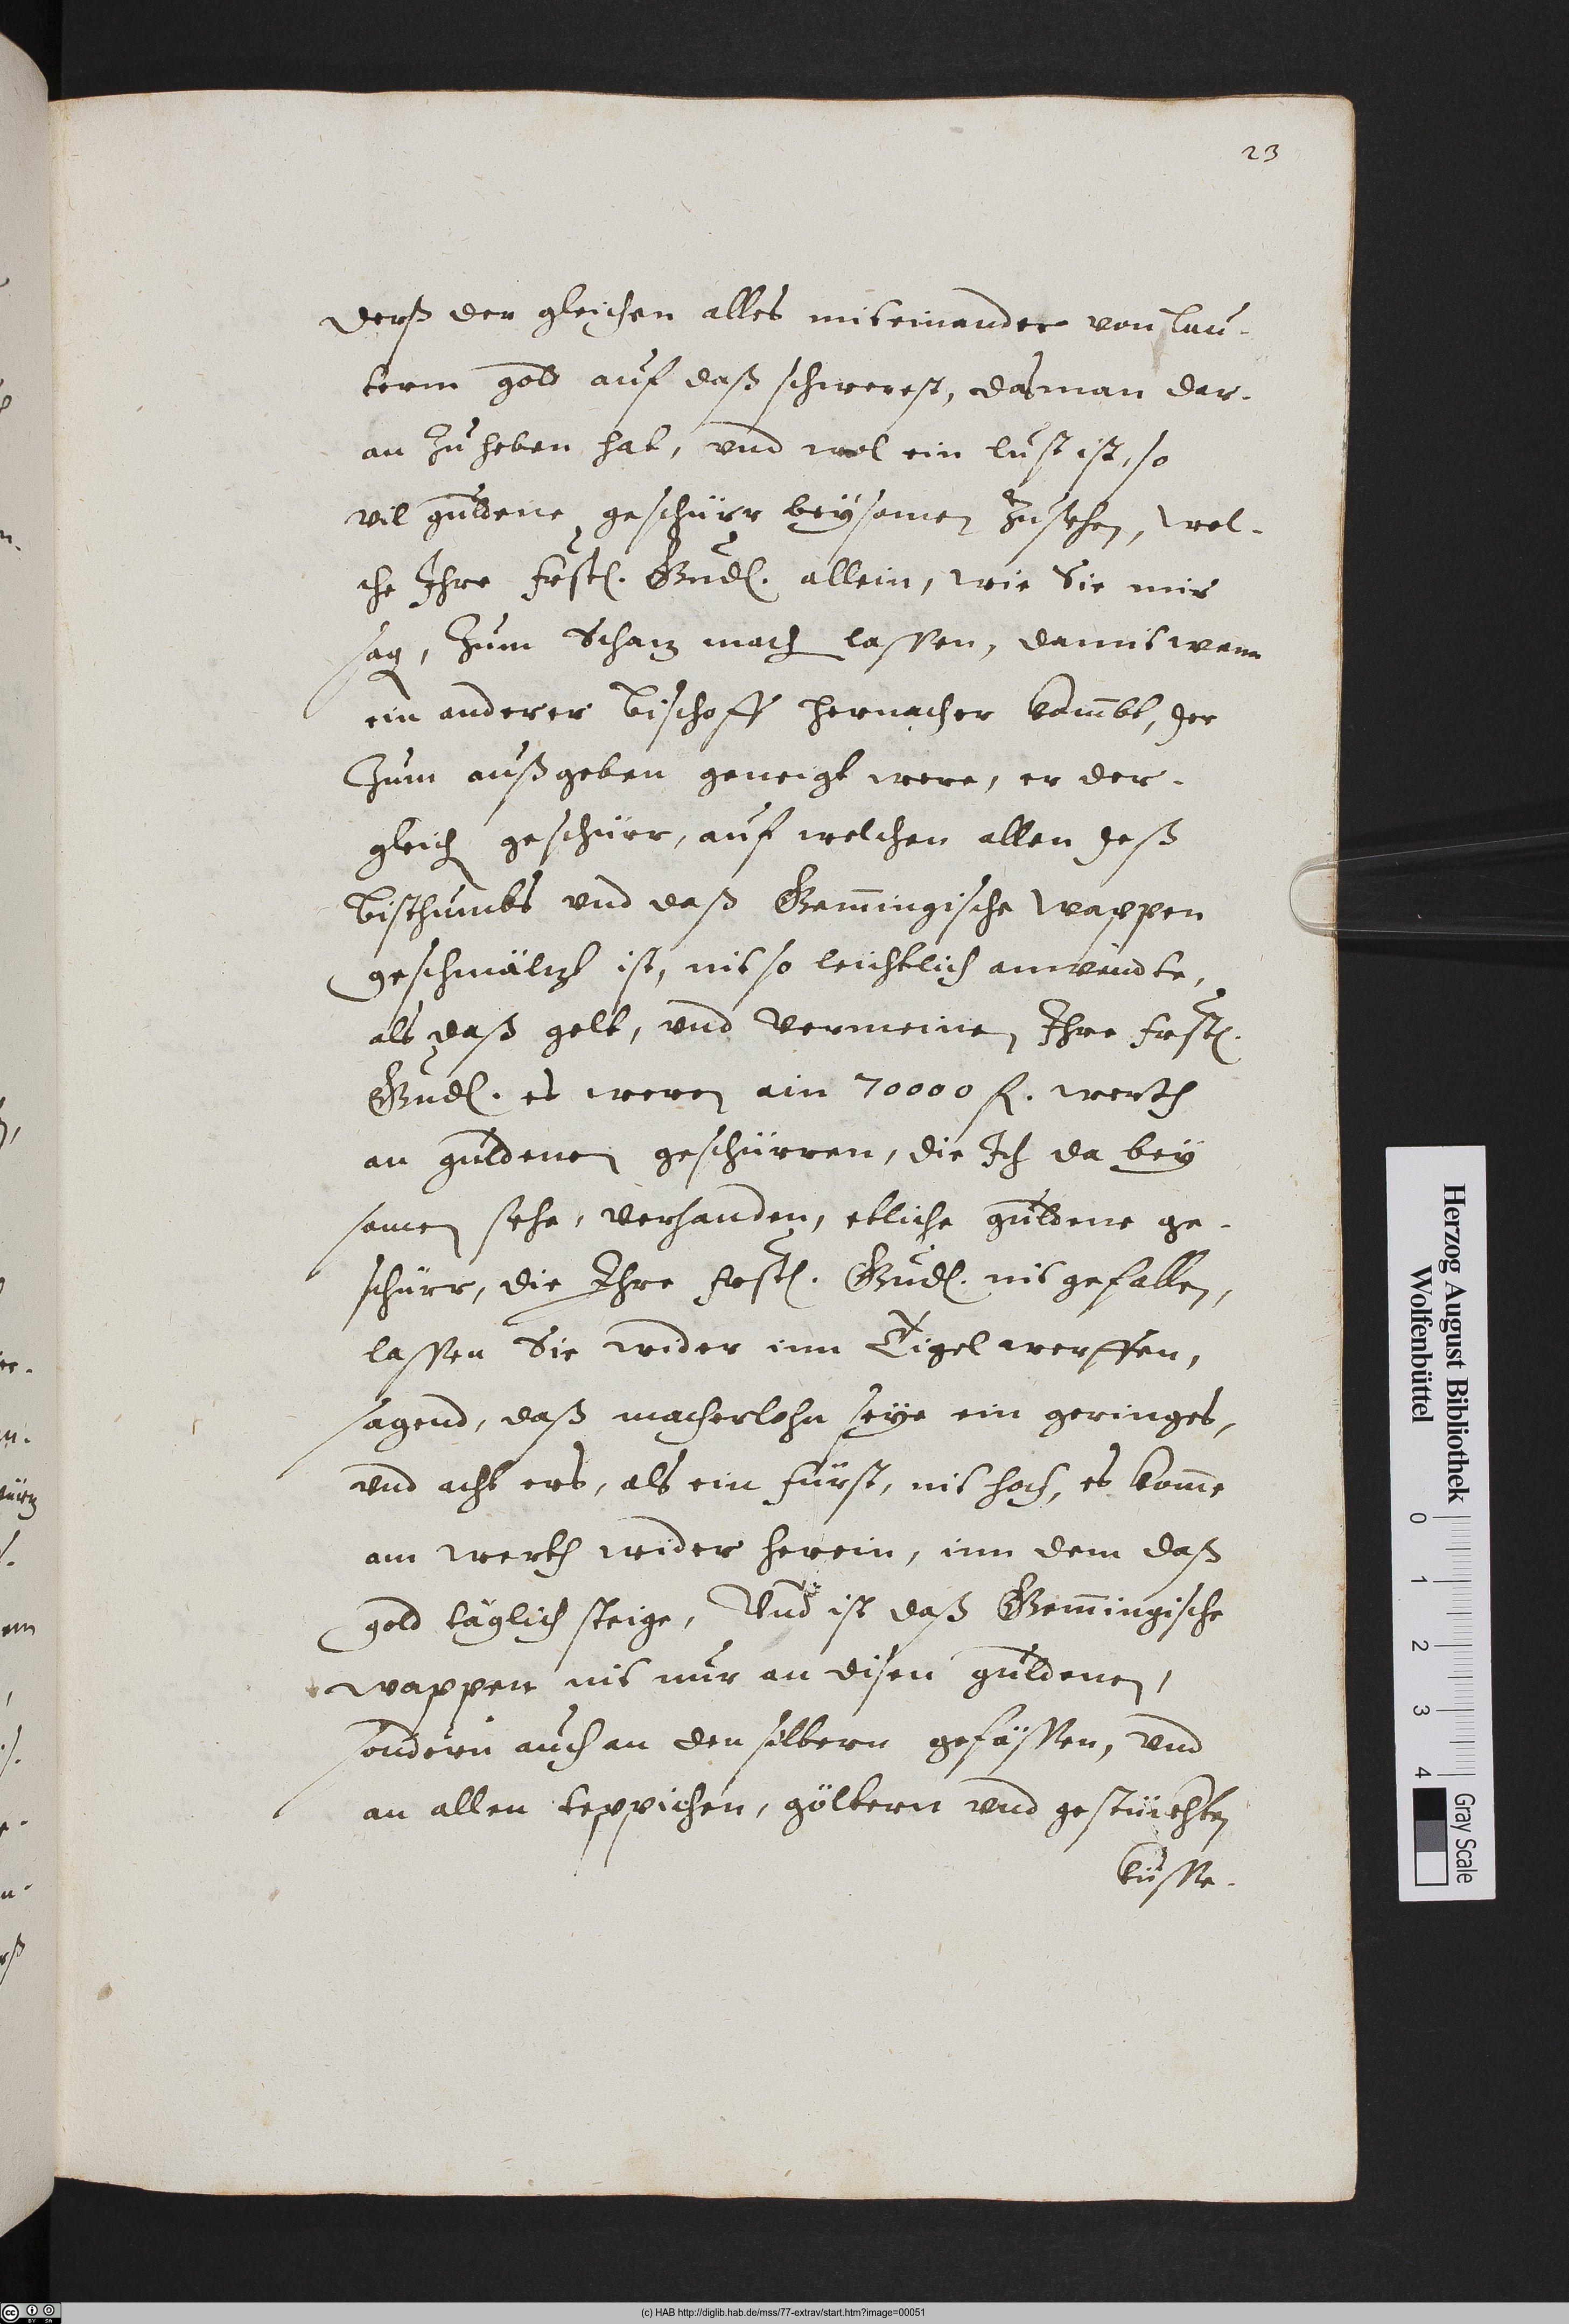 23
derß der gleichen alles miteinander von lau-
term gold auf daß schwerest, das man dar-
an zu heben hat, vnd wol ein lust ist, so
vil guldene geschürr beysamen zusehen, wel-
che Ihre frstl. Gndl. allein, wie Sie mir
sag, zum Schatz mach lassen, damit wann
ein anderer Bischoff hernacher kombt, der
zum außgeben geneigt were, er der-
gleich geschürr, auf welchen allen deß
Bisthumbs vnd daß Gemingische wappen
geschmältzt ist, nit so leichtlich anwendte,
als daß gelt, vnd vermeinen Ihre frstl.
Gndl. es weren ain 70000 fl. werth
an guldenen geschürren, die Ich da bey
samen sehe, verhanden, etliche guldene ge-
schürr, die Ihre frstl. Gndl. nit gefallen,
lassen Sie wider inn Tigel werffen,
sagend, daß macherlohn seye ein geringes,
vnd acht ers, als ein fürst, nit hoch, es kome
am werth wider herein, inn dem daß
gold täglich steige, Vnd ist daß Gemingische
wappen nit nur an disen guldenen,
sondern auch an den silbern gefässen, vnd
an allen teppichen, göltern vnd gestückhten
küsse-
Herzog August Bibliothek
Wolfenbüttel
0 1 2 3 4
Gray Scale
(c) HAB http://diglib.hab.de/mss/77-extrav/start.htm?image=00051